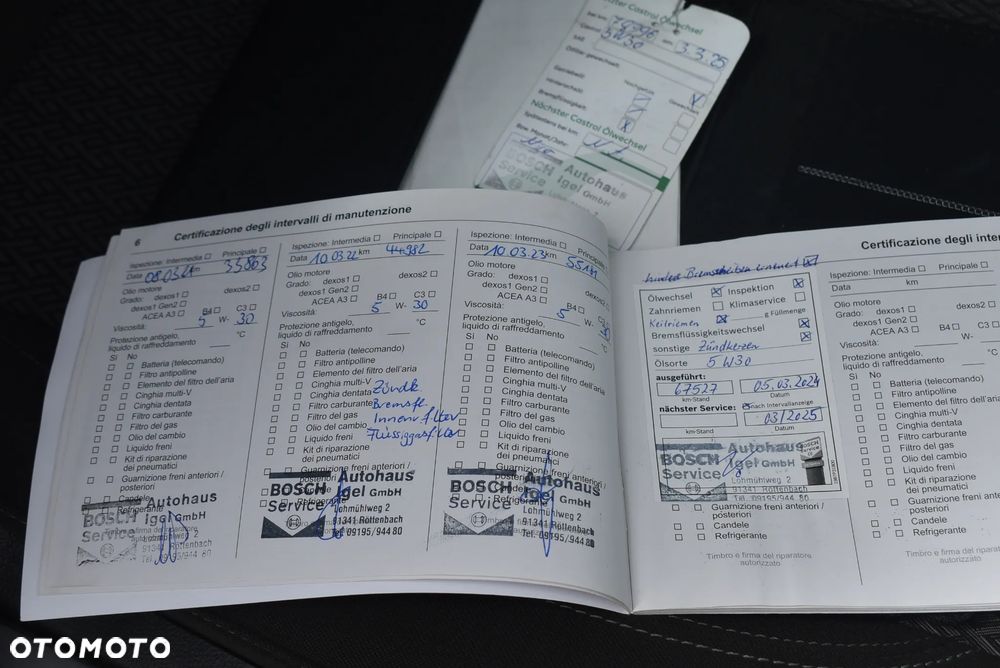 nächster Castrol Ölwechsel
bei km
am 3.3.25
Castrol 5W30
SAE
Nächster Castrol Ölwechsel
Spätestens bei km:
Bzw. Monat/Jahr:
BOSCH
Service
Autohaus
Igel GmbH
6
Certificazione degli intervalli di manutenzione
Ispezione: Intermedia ☐ Principale ☐
Data 08.03.21 km 35863
Olio motore
Grado: dexos1 ☐ dexos2 ☐
dexos1 Gen2 ☐
ACEA A3 ☐ B4 ☐ C3 ☐
Viscosità: 5 W- 30
Protezione antigelo,
liquido di raffreddamento °C
Sì No
☐ ☐ Batteria (telecomando)
☐ ☐ Filtro antipolline
☐ ☐ Elemento del filtro dell'aria
☐ ☐ Cinghia multi-V
☐ ☐ Cinghia dentata
☐ ☐ Filtro carburante
☐ ☐ Filtro del gas
☐ ☐ Olio del cambio
☐ ☐ Liquido freni
☐ ☐ Kit di riparazione
dei pneumatici
☐ ☐ Guarnizione freni anteriori /
posteriori
Candele
Refrigerante
BOSCH
Service
Autohaus
Igel GmbH
Lohmühlweg 2
91341 Röttenbach
Tel. 09195/944 80
Ispezione: Intermedia ☐ Principale ☐
Data 10.03.22 km 44982
Olio motore
Grado: dexos1 ☐ dexos2 ☐
dexos1 Gen2 ☐
ACEA A3 ☐ B4 ☐ C3 ☐
Viscosità: 5 W- 30
Protezione antigelo,
liquido di raffreddamento °C
Sì No
☐ ☐ Batteria (telecomando)
☐ ☐ Filtro antipolline
☐ ☐ Elemento del filtro dell'aria
☐ ☐ Cinghia multi-V
☐ ☐ Cinghia dentata Zündk
☐ ☐ Filtro carburante Bremsfl.
☐ ☐ Filtro del gas Innenrfilter
☐ ☐ Olio del cambio Flüssiggasfilter
☐ ☐ Liquido freni
☐ ☐ Kit di riparazione
dei pneumatici
☐ ☐ Guarnizione freni anteriori /
posteriori
Refrigerante
BOSCH
Service
Autohaus
Igel GmbH
Lohmühlweg 2
91341 Röttenbach
Tel. 09195/944 80
Ispezione: Intermedia ☐ Principale ☐
Data 10.03.23 km
Olio motore
Grado: dexos1 ☐ dexos2 ☐
dexos1 Gen2 ☐
ACEA A3 ☐ B4 ☐ C3 ☐
Viscosità: 5 W-
Protezione antigelo,
liquido di raffreddamento °C
Sì No
☐ ☐ Batteria (telecomando)
☐ ☐ Filtro antipolline
☐ ☐ Elemento del filtro dell'aria
☐ ☐ Cinghia multi-V
☐ ☐ Cinghia dentata
☐ ☐ Filtro carburante
☐ ☐ Filtro del gas
☐ ☐ Olio del cambio
☐ ☐ Liquido freni
☐ ☐ Kit di riparazione
dei pneumatici
☐ ☐ Guarnizione freni anteriori /
posteriori
BOSCH
Service
Autohaus
Igel GmbH
Lohmühlweg 2
91341 Röttenbach
Tel. 09195/944 80
Certificazione degli inter
hinten Bremsscheiben erneuert ☒
Ölwechsel ☒ Inspektion ☒
Zahnriemen ☐ Klimaservice ☐
Keilriemen ☒ g Füllmenge
Bremsflüssigkeitswechsel ☒
sonstige Zündkerzen ☒
Ölsorte 5W30
ausgeführt:
67527 05.03.2024
km-Stand Datum
nächster Service: nach Intervallanzeige
03/2025
km-Stand Datum
BOSCH
Service
Autohaus
Igel GmbH
Lohmühlweg 2
91341 Röttenbach
Tel. 09195/944 80
☐ ☐ Guarnizione freni anteriori /
posteriori
☐ ☐ Candele
☐ ☐ Refrigerante
Timbro e firma del riparatore
autorizzato
Ispezione: Intermedia ☐ Principale ☐
Data km
Olio motore
Grado: dexos1 ☐ dexos2 ☐
dexos1 Gen2 ☐
ACEA A3 ☐ B4 ☐
Viscosità: W-
Protezione antigelo,
liquido di raffreddamento
Sì No
☐ ☐ Batteria (telecomando)
☐ ☐ Filtro antipolline
☐ ☐ Elemento del filtro dell'aria
☐ ☐ Cinghia multi-V
☐ ☐ Cinghia dentata
☐ ☐ Filtro carburante
☐ ☐ Filtro del gas
☐ ☐ Olio del cambio
☐ ☐ Liquido freni
☐ ☐ Kit di riparazione
dei pneumatici
☐ ☐ Guarnizione freni anteriori
posteriori
☐ ☐ Candele
☐ ☐ Refrigerante
Timbro e firma del riparat
autorizzato
OTOMOTO